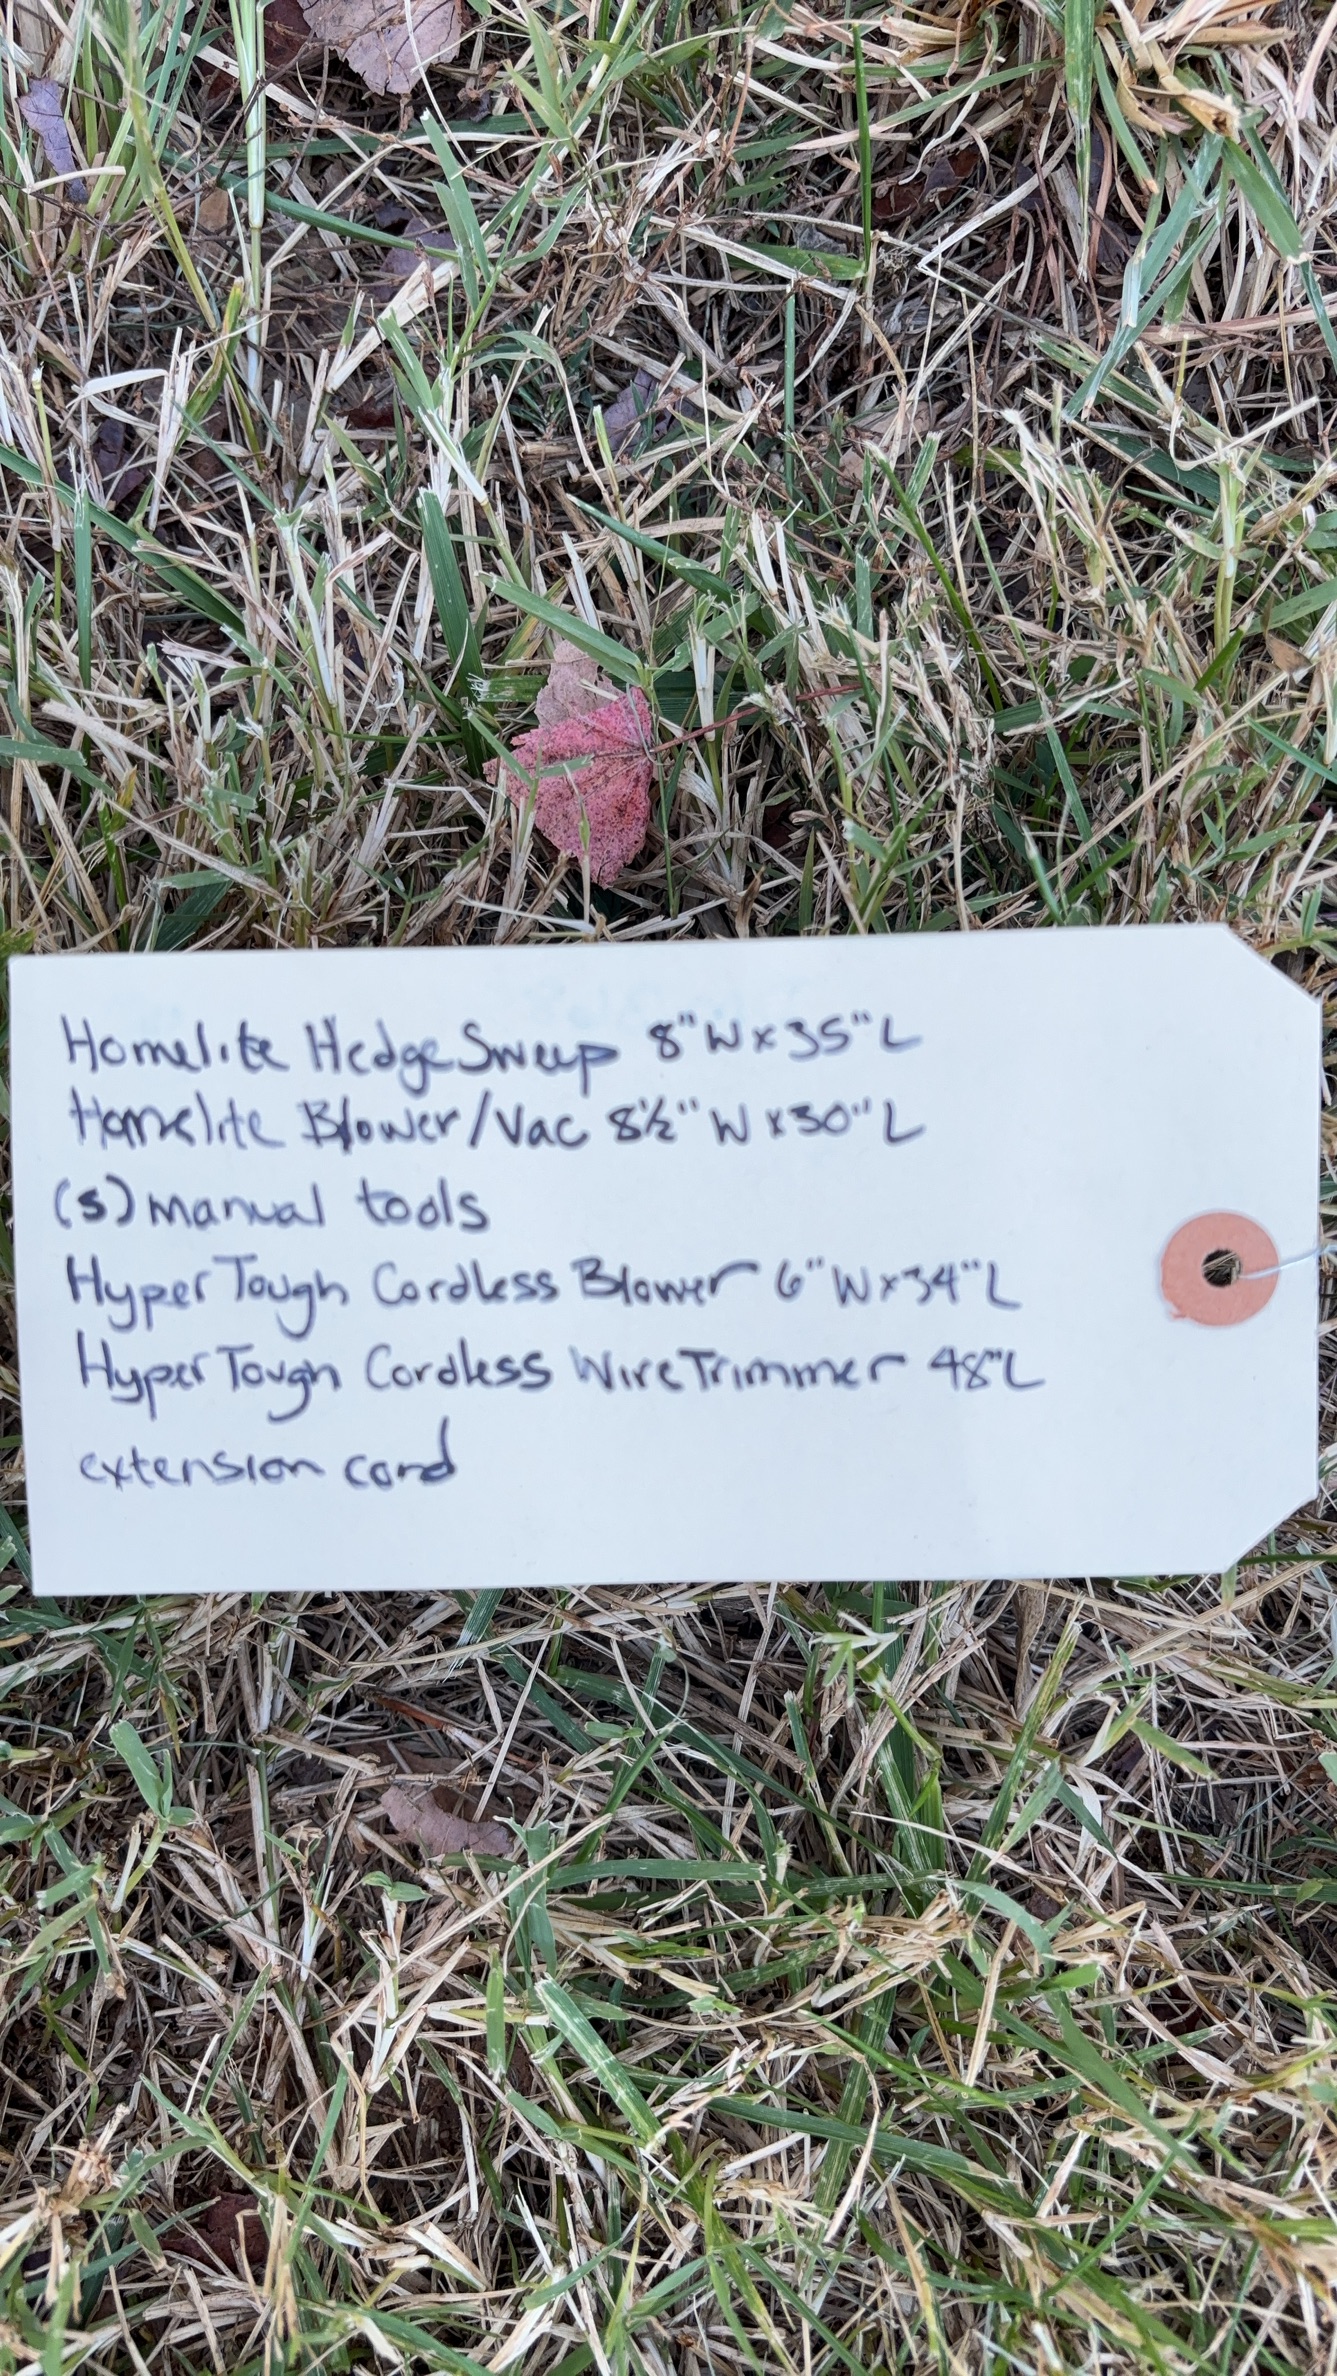 Homelite HedgeSweep 8"W x 35"L
Homelite Blower/Vac 8½" W x 30"L
(5) manual tools
HyperTough Cordless Blower 6"W x 34"L
HyperTough Cordless WireTrimmer 48"L
extension cord